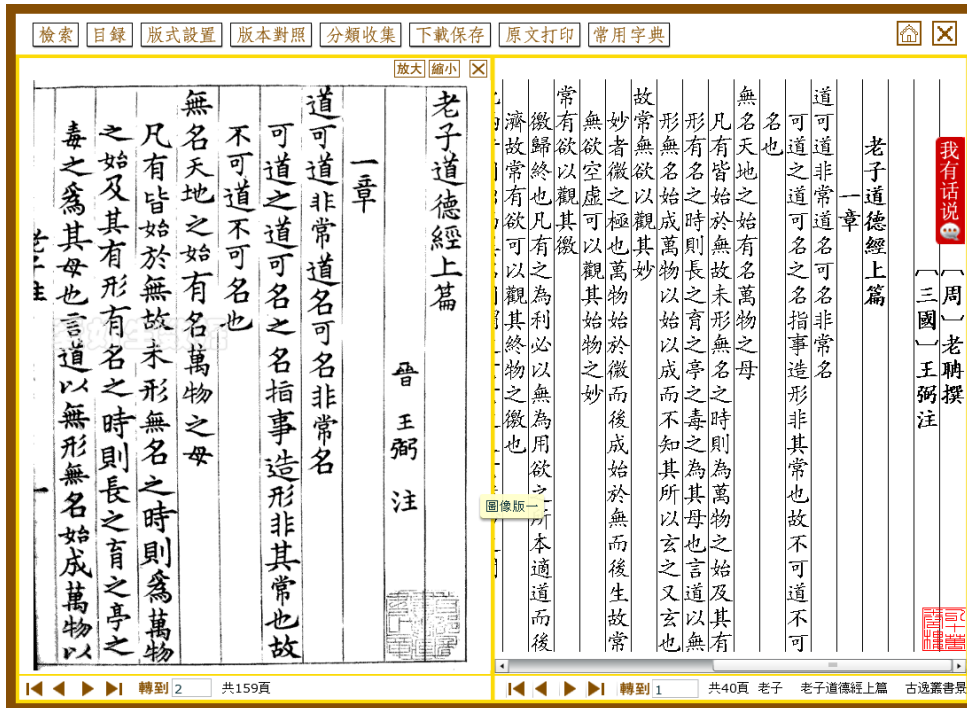 檢索 目録 版式設置 版本對照 分類收集 下載保存 原文打印 常用字典
放大 縮小
老子道德經上篇
晉 王弼 注
一章
道可道非常道名可名非常名
可道之道可名之名指事造形非其常也故
不可道不可名也
無名天地之始有名萬物之母
凡有皆始於無故未形無名之時則爲萬物
之始及其有形有名之時則長之育之亭之
毒之爲其母也言道以無形無名始成萬物以
老子注
一
圖像版一
轉到 2 共159頁
我有话说
〔周〕老聃撰
〔三國〕王弼注
老子道德經上篇
一章
道可道非常道名可名非常名
可道之道可名之名指事造形非其常也故不可道不可
名也
無名天地之始有名萬物之母
凡有皆始於無故未形無名之時則為萬物之始及其有
形有名之時則長之育之亭之毒之為其母也言道以無
形無名始成萬物以始以成而不知其所以玄之又玄也
故常無欲以觀其妙
妙者微之極也萬物始於微而後成始於無而後生故常
無欲空虛可以觀其始物之妙
常有欲以觀其徼
徼歸終也凡有之為利必以無為用欲之所本適道而後
濟故常有欲可以觀其終物之徼也
轉到 1 共40頁 老子 老子道德經上篇 古逸叢書景